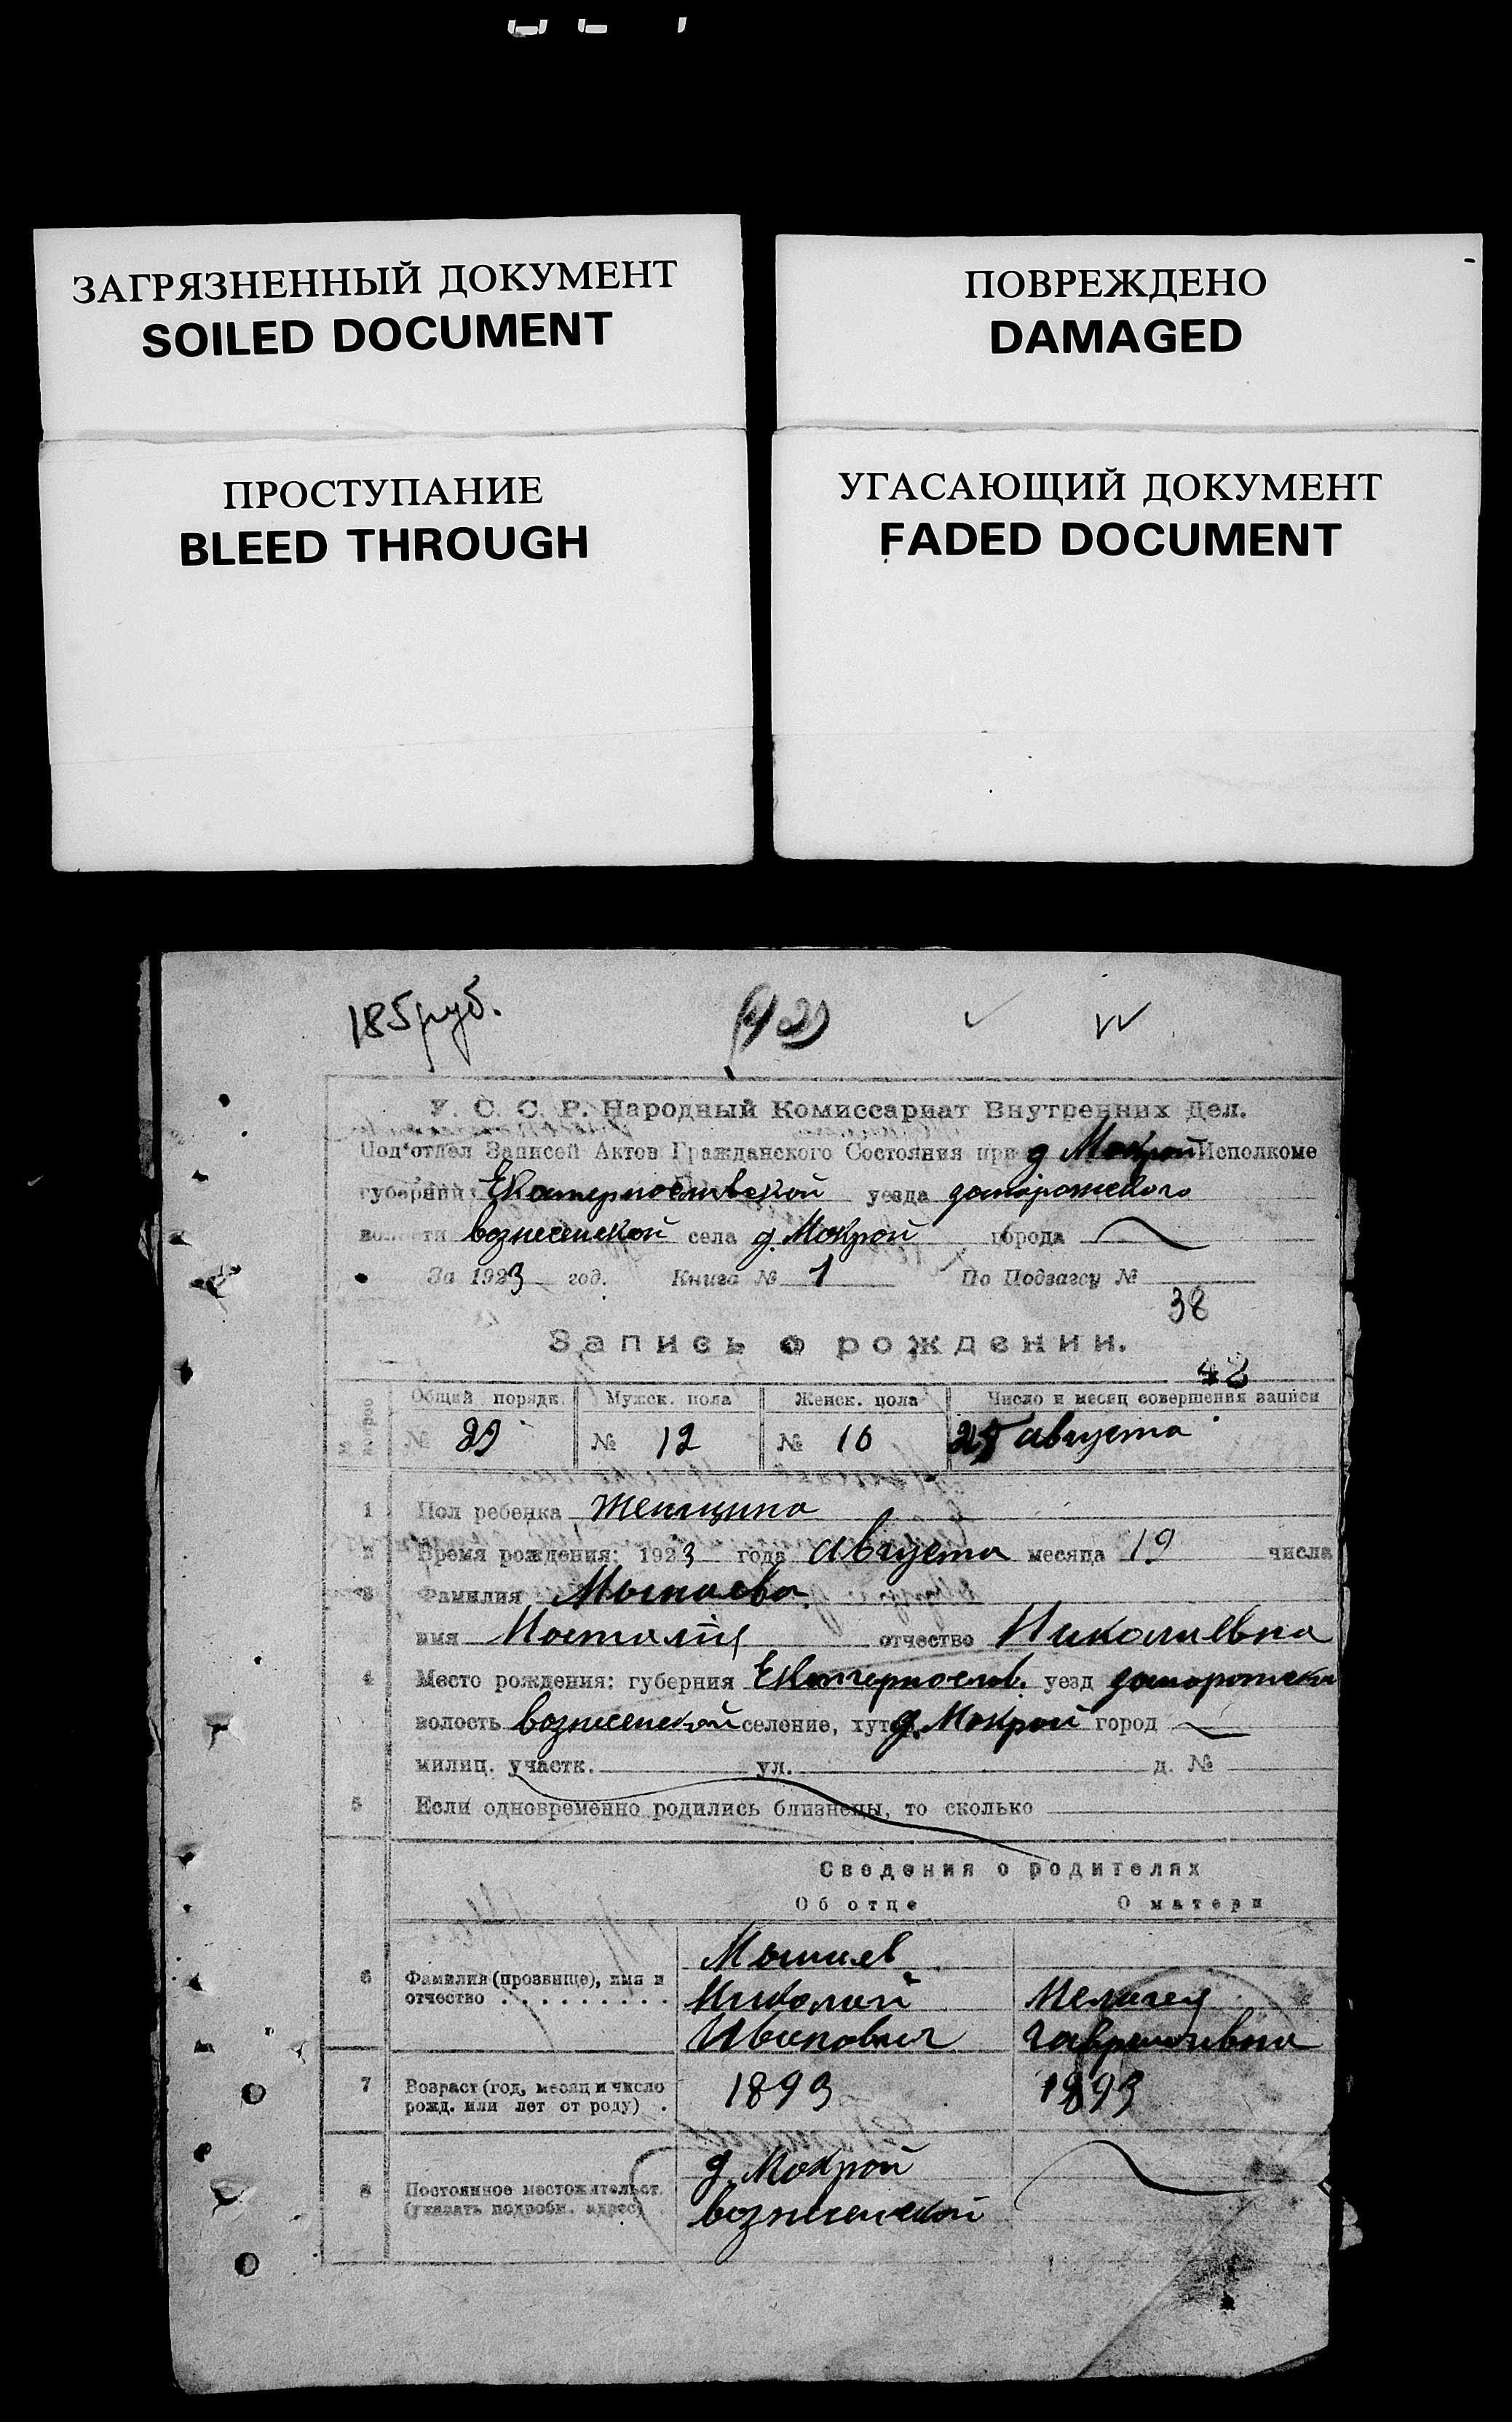 ЗАГРЯЗНЕННЫЙ ДОКУМЕНТ
SOILED DOCUMENT
ПРОСТУПАНИЕ
BLEED THROUGH
ПОВРЕЖДЕНО
DAMAGED
УГАСАЮЩИЙ ДОКУМЕНТ
FADED DOCUMENT
185 руб.
(42)
У. С. С. Р. Народный Комиссариат Внутренних Дел.
Под'отдел Записей Актов Гражданского Состояния при д Мокрой Исполкоме
губернии Екатеринославской уезда запорожского
волости вознесенской села д. Мокрой города
За 1923 год. Книга № 1 По Подзагсу №
38
Запись о рождении.
42
Общий порядк. Мужск. пола Женск. пола Число и месяц совершения записи
№ 29 № 12 № 16 25 августа
1 Пол ребенка женщина
2 Время рождения: 1923 года августа месяца 19 числа
3 Фамилия
имя Наталія отчество Николаевна
4 Место рождения: губерния Екатеринослав. уезд запорожска
волость вознесенской селение, хут. д. Мокрой город
милиц. участк. ул. д. №
5 Если одновременно родились близнецы, то сколько
Сведения о родителях
Об отце О матери
6 Фамилия (прозвище), имя и отчество
Николай
Иванович
7 Возраст (год, месяц и число рожд. или лет от роду) . 1893 1893
8 Постоянное местожительст. (указать подробн. адрес)
д. Мокрой
вознесенской